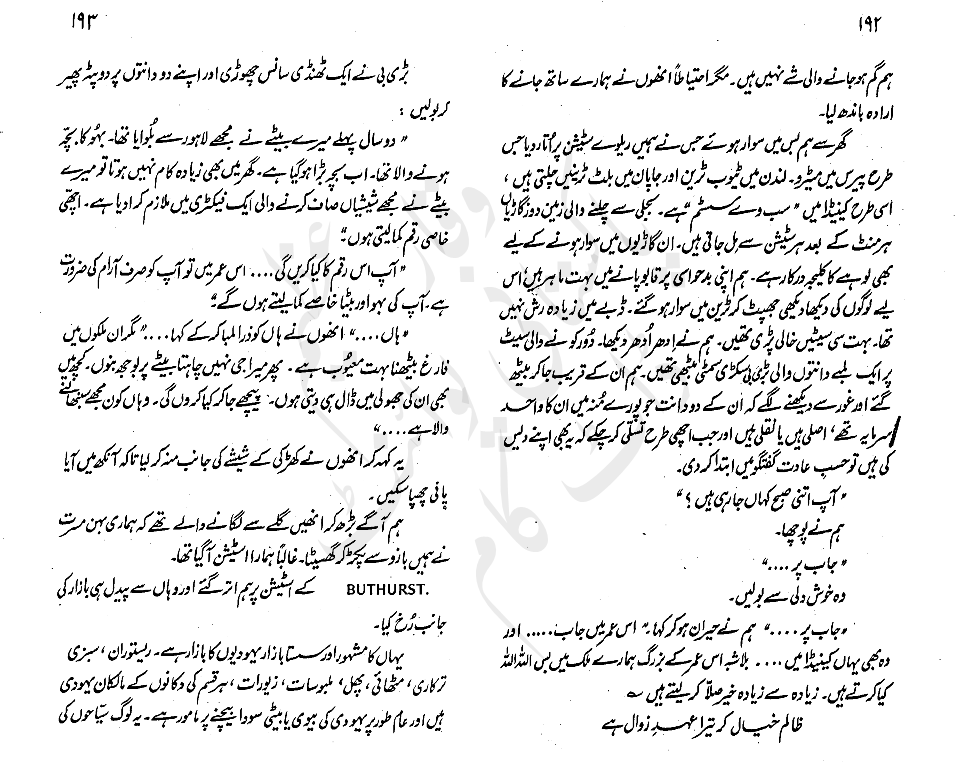 ۱۹۲
ہم گم ہو جانے والی شے نہیں ہیں۔ مگر احتیاطاً انھوں نے ہمارے ساتھ جانے کا
ارادہ باندھ لیا۔
گھر سے ہم بس میں سوار ہوئے جس نے ہمیں ریلوے سٹیشن پر اُتار دیا جس
طرح پیرس میں میٹرو۔ لندن میں ٹیوب ٹرین اور جاپان میں بلٹ ٹرینیں چلتی ہیں،
اسی طرح کینیڈا میں "سب وے سسٹم" ہے۔ بجلی سے چلنے والی زمین دوز گاڑیاں
ہر منٹ کے بعد ہر سٹیشن سے مل جاتی ہیں۔ ان گاڑیوں میں سوار ہونے کے لیے
بھی لوہے کا کلیجہ درکار ہے۔ ہم اپنی بدحواسی پر قابو پانے میں بہت ماہر ہیں اُس
لیے لوگوں کی دیکھا دیکھی جھپٹ کر ٹرین میں سوار ہو گئے۔ ڈبے میں زیادہ رش نہیں
تھا۔ بہت سی سیٹیں خالی پڑی تھیں۔ ہم نے اِدھر اُدھر دیکھا۔ دُور کونے والی سیٹ
پر ایک لمبے دانتوں والی بڑی بی سکڑی سمٹی بیٹھی تھیں۔ ہم ان کے قریب جا کر بیٹھ
گئے اور غور سے دیکھنے لگے کہ ان کے دو دانت جو پورے منہ میں ان کا واحد
سرمایہ تھے، اصلی ہیں یا نقلی ہیں اور جب اچھی طرح تسلی کر چکے کہ یہ بھی اپنے دیس
کی ہیں تو حسبِ عادت گفتگو میں ابتدا کر دی۔
"آپ اتنی صبح کہاں جا رہی ہیں؟"
ہم نے پوچھا۔
"جاب پر ...."
وہ خوش دلی سے بولیں۔
"جاب پر ...." ہم نے حیران ہو کر کہا۔ "اس عمر میں جاب..... اور
وہ بھی یہاں کینیڈا میں .... بلاشبہ اس عمر کے بزرگ ہمارے ملک میں بس اللہ اللہ
کیا کرتے ہیں۔ زیادہ سے زیادہ خیر صلّا کر لیتے ہیں ؎
ظالم خیال کر تیرا عہدِ زوال ہے
۱۹۳
بڑی بی نے ایک ٹھنڈی سانس چھوڑی اور اپنے دو دانتوں پر دوپٹہ پھیر
کر بولیں :
"دو سال پہلے میرے بیٹے نے مجھے لاہور سے بُلوایا تھا۔ بہو کا بچہ
ہونے والا تھا۔ اب بچہ بڑا ہو گیا ہے۔ گھر میں بھی زیادہ کام نہیں ہوتا تو میرے
بیٹے نے مجھے شیشیاں صاف کرنے والی ایک فیکٹری میں ملازم کرا دیا ہے۔ اچھی
خاصی رقم کما لیتی ہوں"
"آپ اس رقم کا کیا کریں گی .... اس عمر میں تو آپ کو صرف آرام کی ضرورت
ہے، آپ کی بہو اور بیٹا خاصے کما لیتے ہوں گے"
"ہاں ...." انھوں نے ہاں کو ذرا لمبا کر کے کہا .... "مگر ان ملکوں میں
فارغ بیٹھنا بہت معیُوب ہے۔ پھر میرا جی نہیں چاہتا بیٹے پر بوجھ بنوں۔ کچھ میں
بھی ان کی جھولی میں ڈال ہی دیتی ہوں۔ پیچھے جا کر کیا کروں گی۔ وہاں کون مجھے سنبھالنے
والا ہے ...."
یہ کہہ کر انھوں نے کھڑکی کے شیشے کی جانب منہ کر لیا تاکہ آنکھ میں آیا
پانی چھپا سکیں۔
ہم آگے بڑھ کر انھیں گلے سے لگانے والے تھے کہ ہماری بہن مسرت
نے ہمیں بازو سے پکڑ کر گھسیٹا۔ غالباً ہمارا اسٹیشن آ گیا تھا۔
BUTHURST. کے اسٹیشن پر ہم اتر گئے اور وہاں سے پیدل ہی بازار کی
جانب رُخ کیا۔
یہاں کا مشہور اور سستا بازار یہودیوں کا بازار ہے۔ ریستوران، سبزی
ترکاری، مٹھائی، پھل، ملبوسات، زیورات، ہر قسم کی دکانوں کے مالکان یہودی
ہیں اور عام طور پر یہودی کی بیوی یا بیٹی سودا بیچنے پر مامور ہے۔ یہ لوگ سیاحوں کی